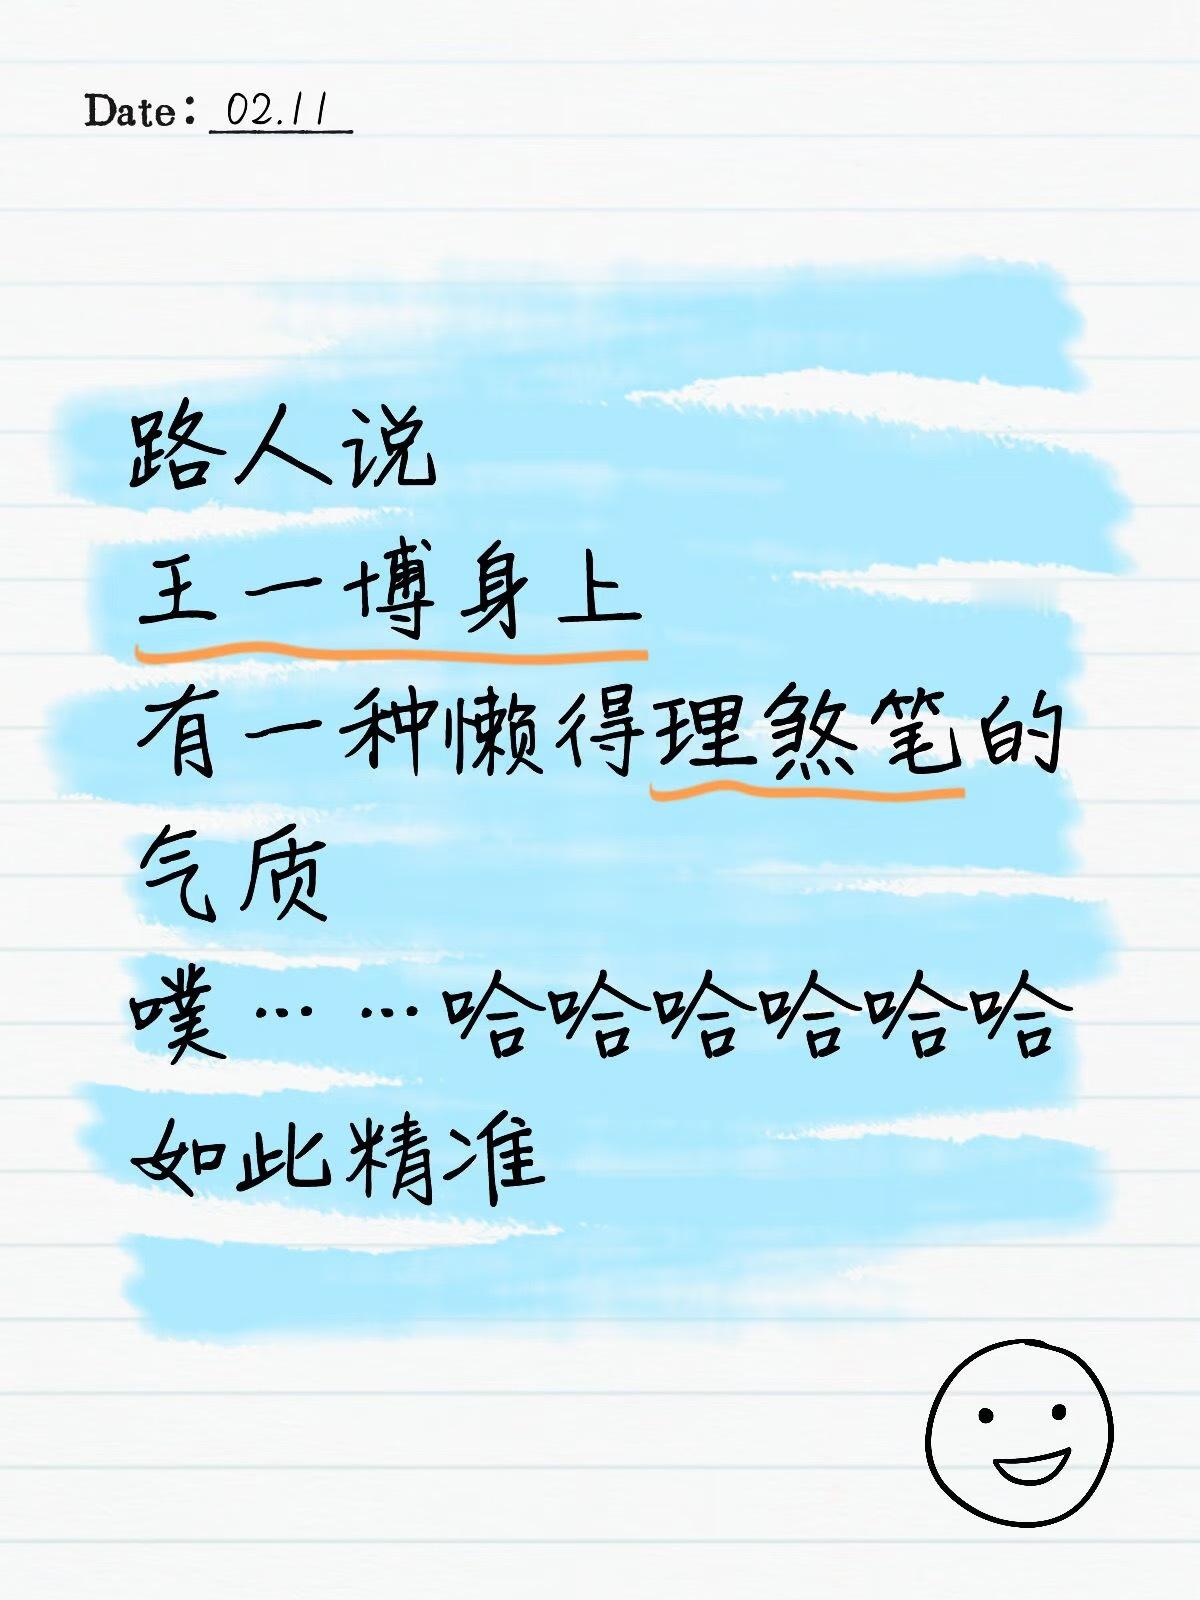 Date: 02.11
路人说
王一博身上
有一种懒得理煞笔的
气质
噗……哈哈哈哈哈哈
如此精准